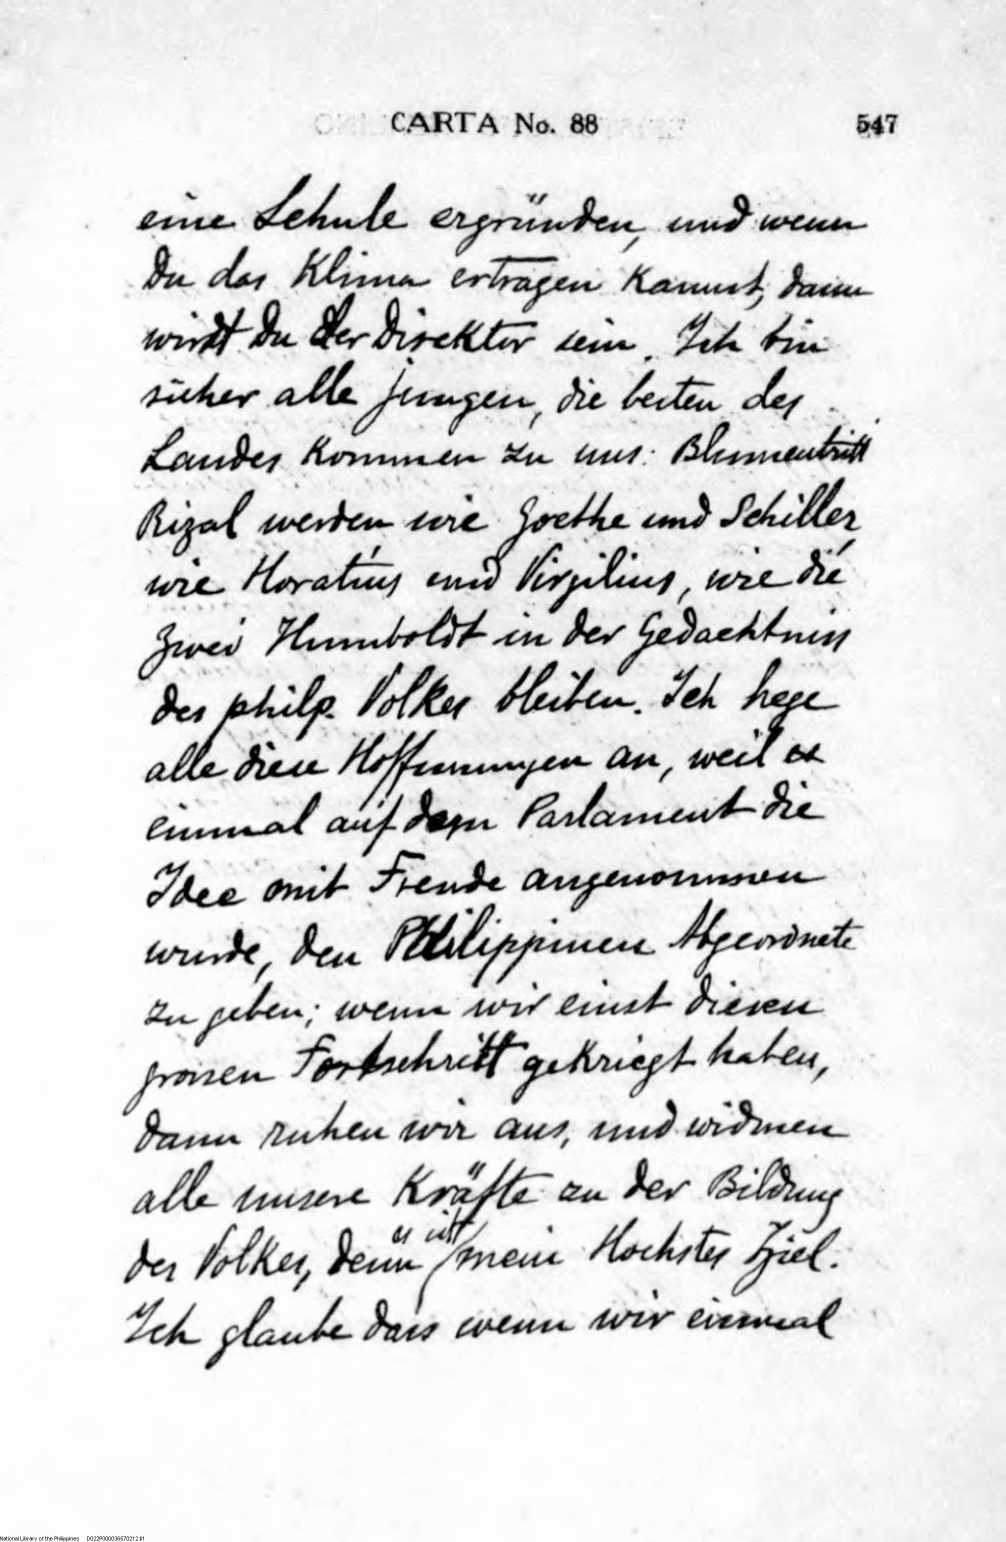 CARTA No. 88 547
eine Schule ergründen, und wenn
Du das Klima ertragen kannst, dann
wirdt Du der Direktor sein. Ich bin
sicher alle jungen, die besten des
Landes kommen zu uns: Blumentritt
Rizal werden wie Goethe und Schiller,
wie Horatius und Virgilius, wie die
zwei Humboldt in der Gedächtniss
des philp. Volkes bleiben. Ich hege
alle diese Hoffnungen an, weil es
einmal auf dem Parlament die
Idee mit Freude angenommen
wurde, den Philippinen Abgeordnete
zu geben; wenn wir einst diesen
grossen Fortschritt gekriegt haben,
dann ruhen wir aus, und widmen
alle unsere Kräfte zu der Bildung
des Volkes, denn es ist mein Hochstes Ziel.
Ich glaube dass wenn wir einmal
National Library of the Philippines